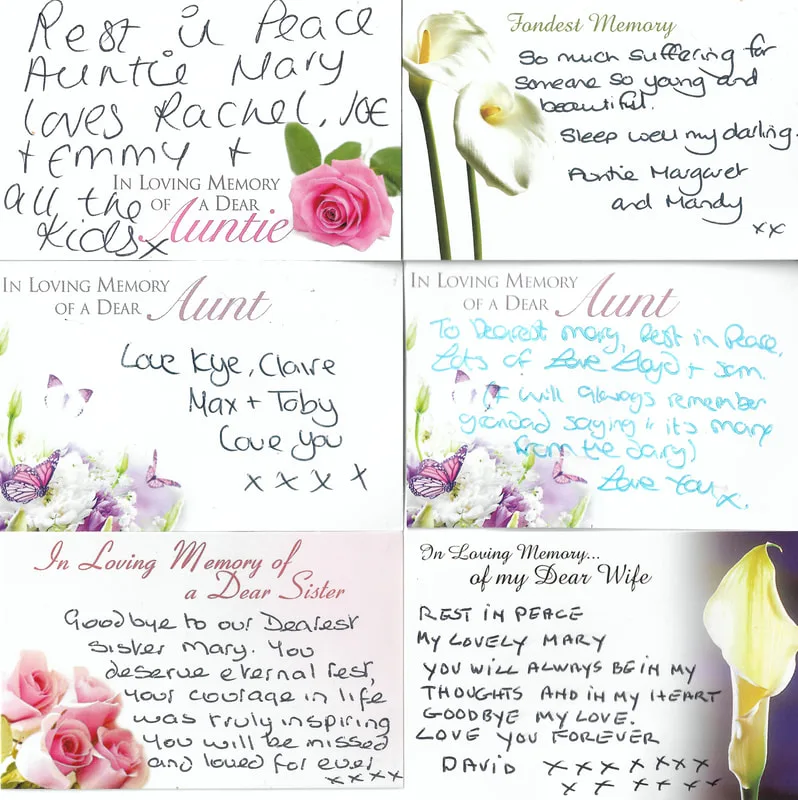 Rest in Peace
Auntie Mary
Loves Rachel, JOE
+ Emmy +
all the
Kids x
IN LOVING MEMORY
OF A DEAR
Auntie
Fondest Memory
So much suffering for
someone so young and
beautiful.
Sleep well my darling.
Auntie Margaret
and Mandy
xx
IN LOVING MEMORY
OF A DEAR Aunt
Love Kye, Claire
Max + Toby
Love you
x x x x
IN LOVING MEMORY
OF A DEAR Aunt
To Dearest mary, Rest in Peace,
Lots of Love Lloyd + Sam.
(I will always remember
grandad saying " it's mary
from the dairy)
Love You x.
In Loving Memory of
a Dear Sister
Goodbye to our Dearest
sister Mary. You
deserve eternal rest,
your courage in life
was truly inspiring
You will be missed
and loved for ever
xxxx
In Loving Memory...
of my Dear Wife
REST IN PEACE
MY LOVELY MARY
YOU WILL ALWAYS BE IN MY
THOUGHTS AND IN MY HEART
GOODBYE MY LOVE.
LOVE YOU FOREVER
DAVID X X X X X X X
X X X X X X